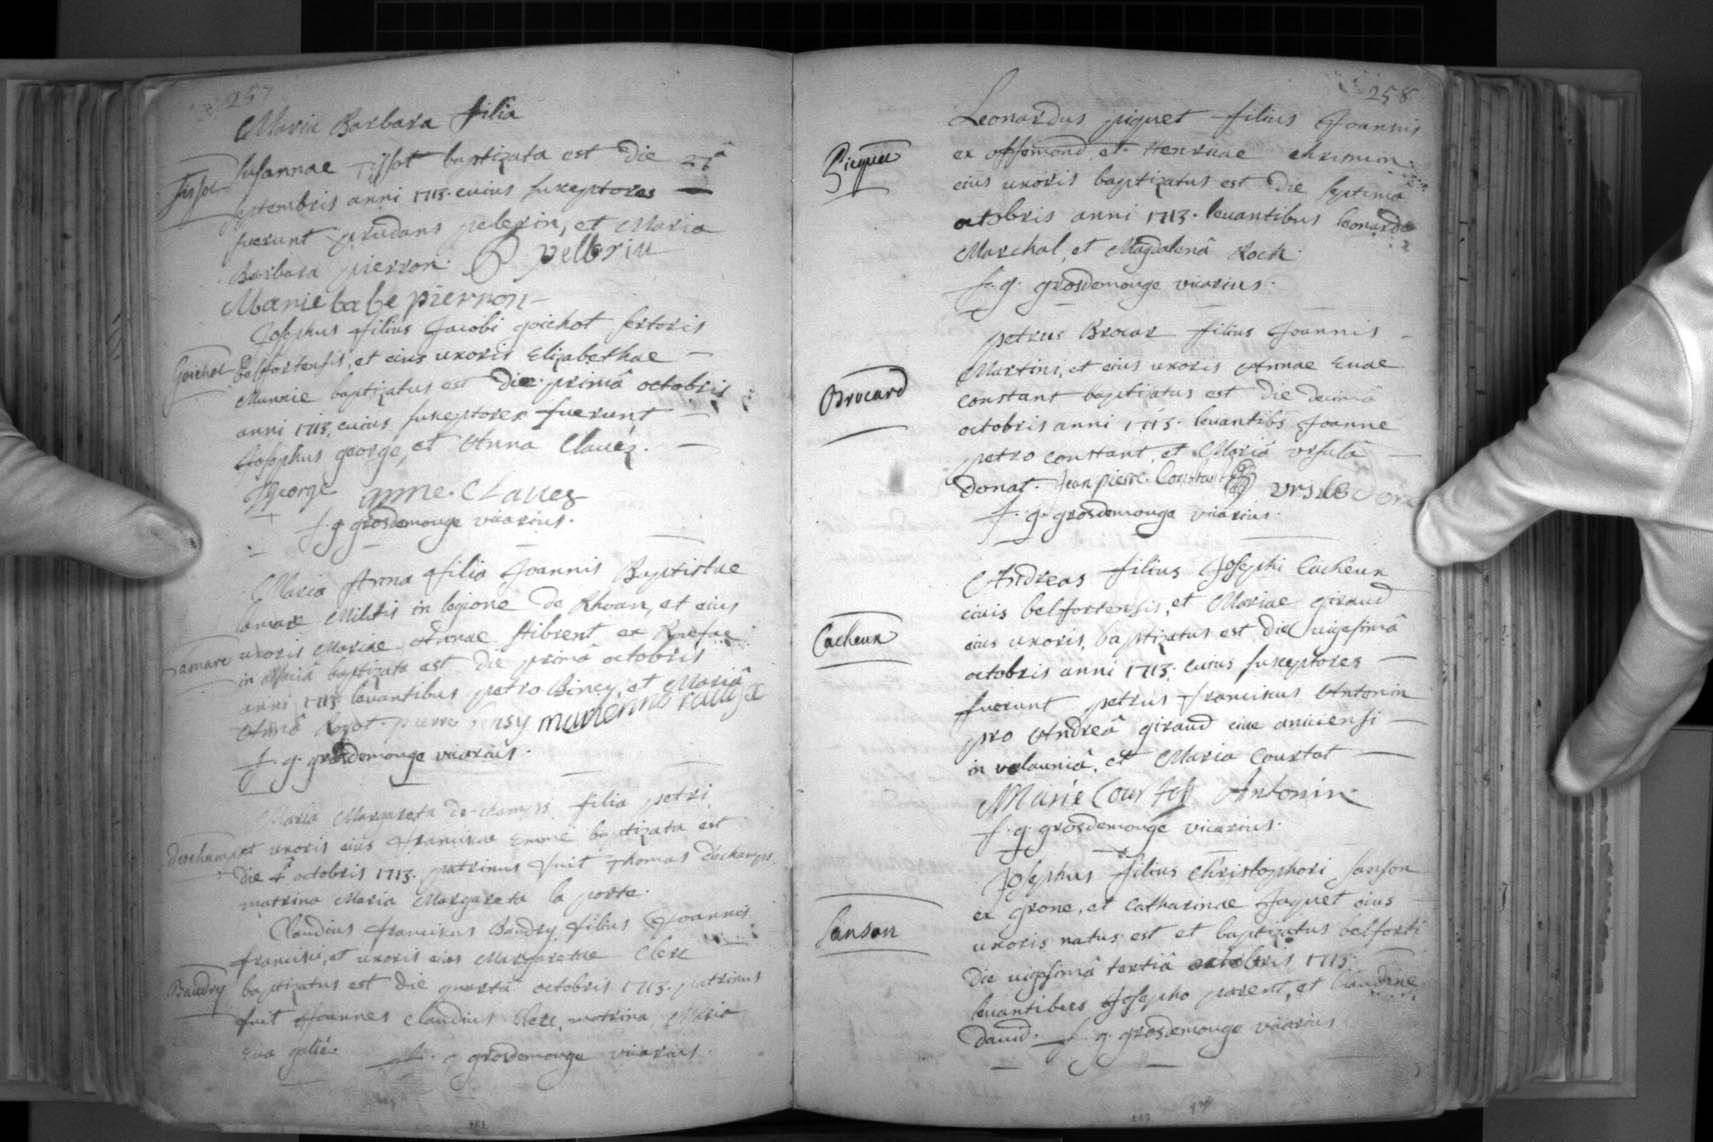 257
Maria Barbara filia
Tissot
Susannae Tissot baptizata est die 27â
septembris anni 1713. cuius susceptores
fuerunt prudans pelerin, et Maria
Barbara pierron. P pellerin
Marie babe pierron
Josephus filius Jacobi goichot sertoris
Goichot
belfortensis, et eius uxoris Elizabethae
Munnie baptizatus est die primâ octobris
anni 1713. cuius susceptores fuerunt
Josephus george, et Anna Clavéz.
J george anne Clauez
f. g. grosdemouge vicarius.
Maria Anna filia Joannis Baptistae
lamare Militis in legione de Rhoan, et eius
Lamare
uxoris Mariae Annae stibrent ex
in baptizata est die primâ octobris
anni 1713 levantibus petro Bincy, et Mariâ
Annâ pierre
f. g. grosdemouge vicarius.
Maria Margareta de-champs filia petri
Deschamps
et uxoris eius franciscae Emmé baptizata est
die 4â octobris 1713. patrinus fuit Thomas dechamps
matrina Maria Margareta la porte.
Claudius franciscus Baudry filius Joannis
francisci, et uxoris eius Margaretae Clerc
Baudry
baptizatus est die quartâ octobris 1713. patrinus
fuit Joannes Claudius Clerc, matrina Maria
Eva galié. f. g. grosdemouge vicarius.
258
Leonardus piquet filius Joannis
Picquet
ex offemond, et Henricae
eius uxoris baptizatus est die septimâ
octobris anni 1713. levantibus leonardo
Marchal, et Magdalenâ Roch.
f. g. grosdemouge vicarius.
petrus Brocar filius Joannis
Martini, et eius uxoris Annae Evae
Brocard
constant baptizatus est die decimâ
octobris anni 1713. levantibs Joanne
petro constant, et Mariâ ursulâ
Donat. Jean pierre Constant ursule
f. g. grosdemouge vicarius.
Andreas filius Josephi Cacheux
civis belfortensis, et Mariae giraud
Cacheux
eius uxoris, baptizatus est die vigesimâ
octobris anni 1713. cuius susceptores
fuerunt petrus franciscus Antonin
pro Andreâ giraud cive aniciensi
in velauniâ, et Maria Courtot
Marie Courtot Antonin
f. g. grosdemouge vicarius.
Josephus filius Christophori sanson
ex grone, et Catharinae Jaquet eius
Sanson
uxoris natus est et baptizatus belforti
die vigesimâ tertiâ octobris 1713.
levantibus Josepho parent, et Claudine
david. f. g. grosdemouge vicarius